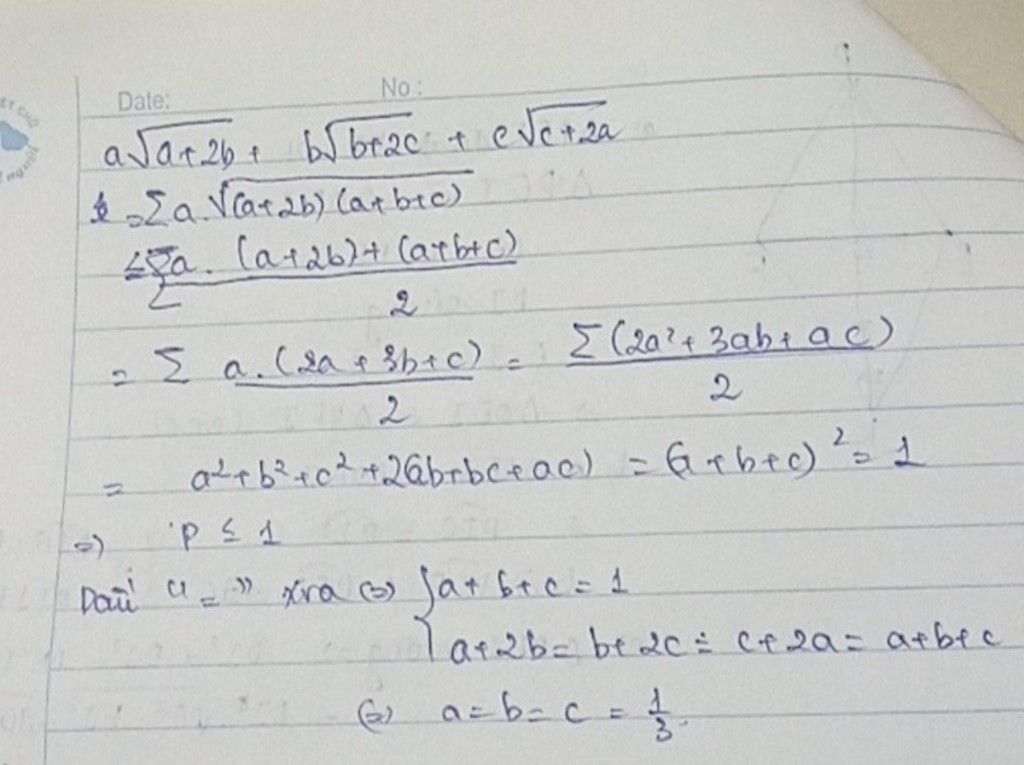 Date: No:
a√(a+2b) + b√(b+2c) + c√(c+2a)
= Σa.√((a+2b)(a+b+c))
≤ Σ a.((a+2b)+(a+b+c))/2
= Σ a.(2a+3b+c)/2 = Σ(2a²+3ab+ac)/2
= a²+b²+c²+2(ab+bc+ac) = (a+b+c)² = 1
=) P ≤ 1
Dấu "=" xra (=) { a+b+c = 1
a+2b = b+2c = c+2a = a+b+c
(=) a = b = c = 1/3.